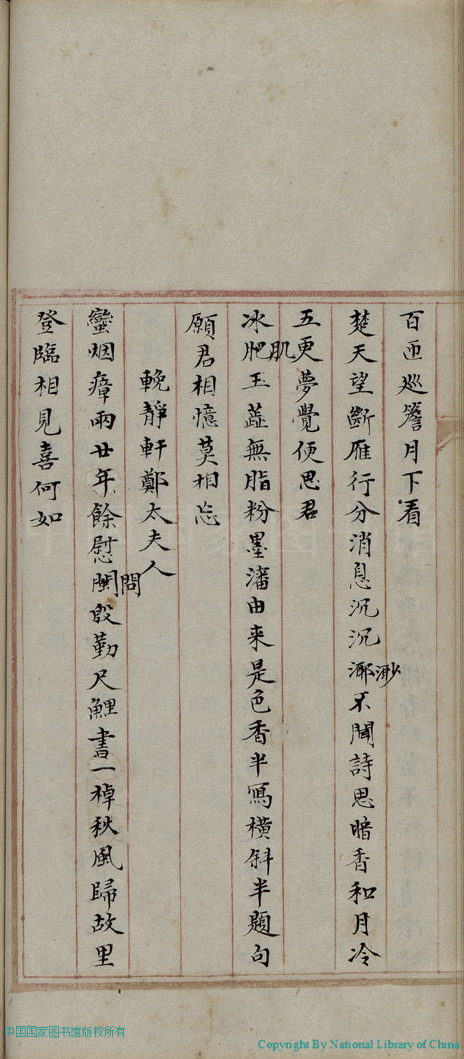 百匝巡簷月下看
楚天望斷雁行分消息沉沉渺不聞詩思暗香和月冷
五更夢覺便思君
冰肌玉蕋無脂粉墨瀋由来是色香半寫橫斜半題句
願君相憶莫相忘
輓靜軒鄭太夫人
蠻烟瘴雨廿年餘慰問殷勤尺鯉書一棹秋風歸故里
登臨相見喜何如
中国国家图书馆版权所有
Copyright By National Library of China